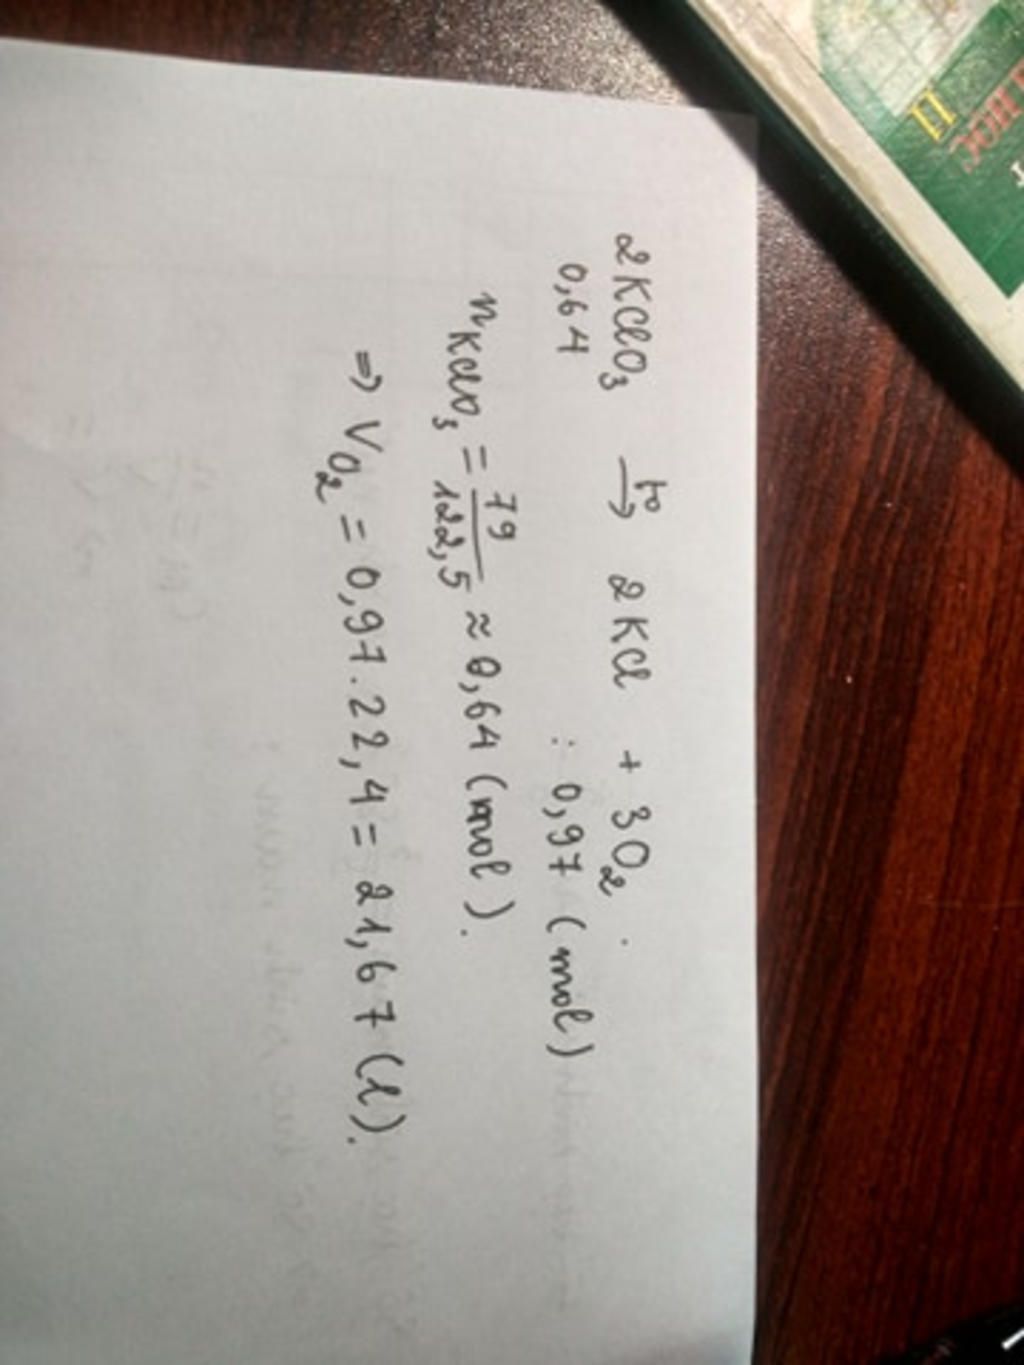 2KClO₃ →(t°) 2KCl + 3O₂
0,64 : 0,97 (mol)
n KClO₃ = 79/122,5 ≈ 0,64 (mol).
⇒ V O₂ = 0,97.22,4 = 21,67 (l).
HỌC
11